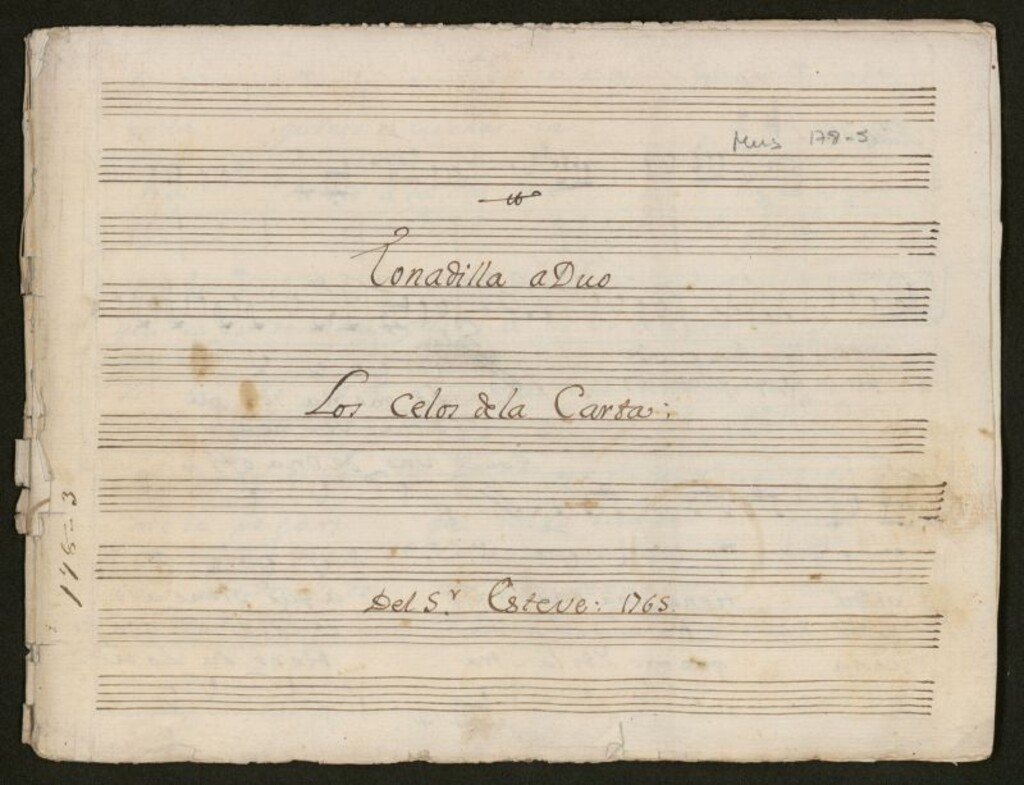 Mus 178-5
Tonadilla a Duo
Los Celos dela Carta:
178-3
Del S.r Esteve: 1765.